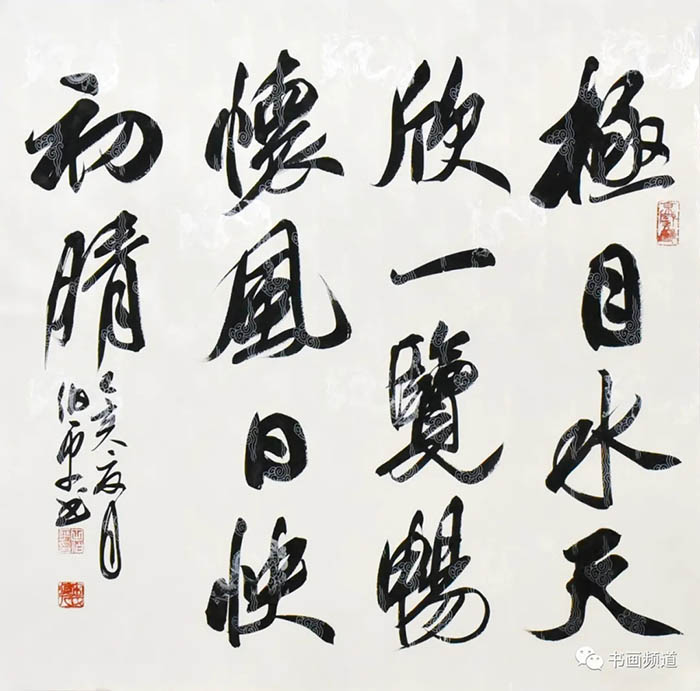 極目水天
欣一覽暢
懷風日快
初晴
己亥夏月
书画频道